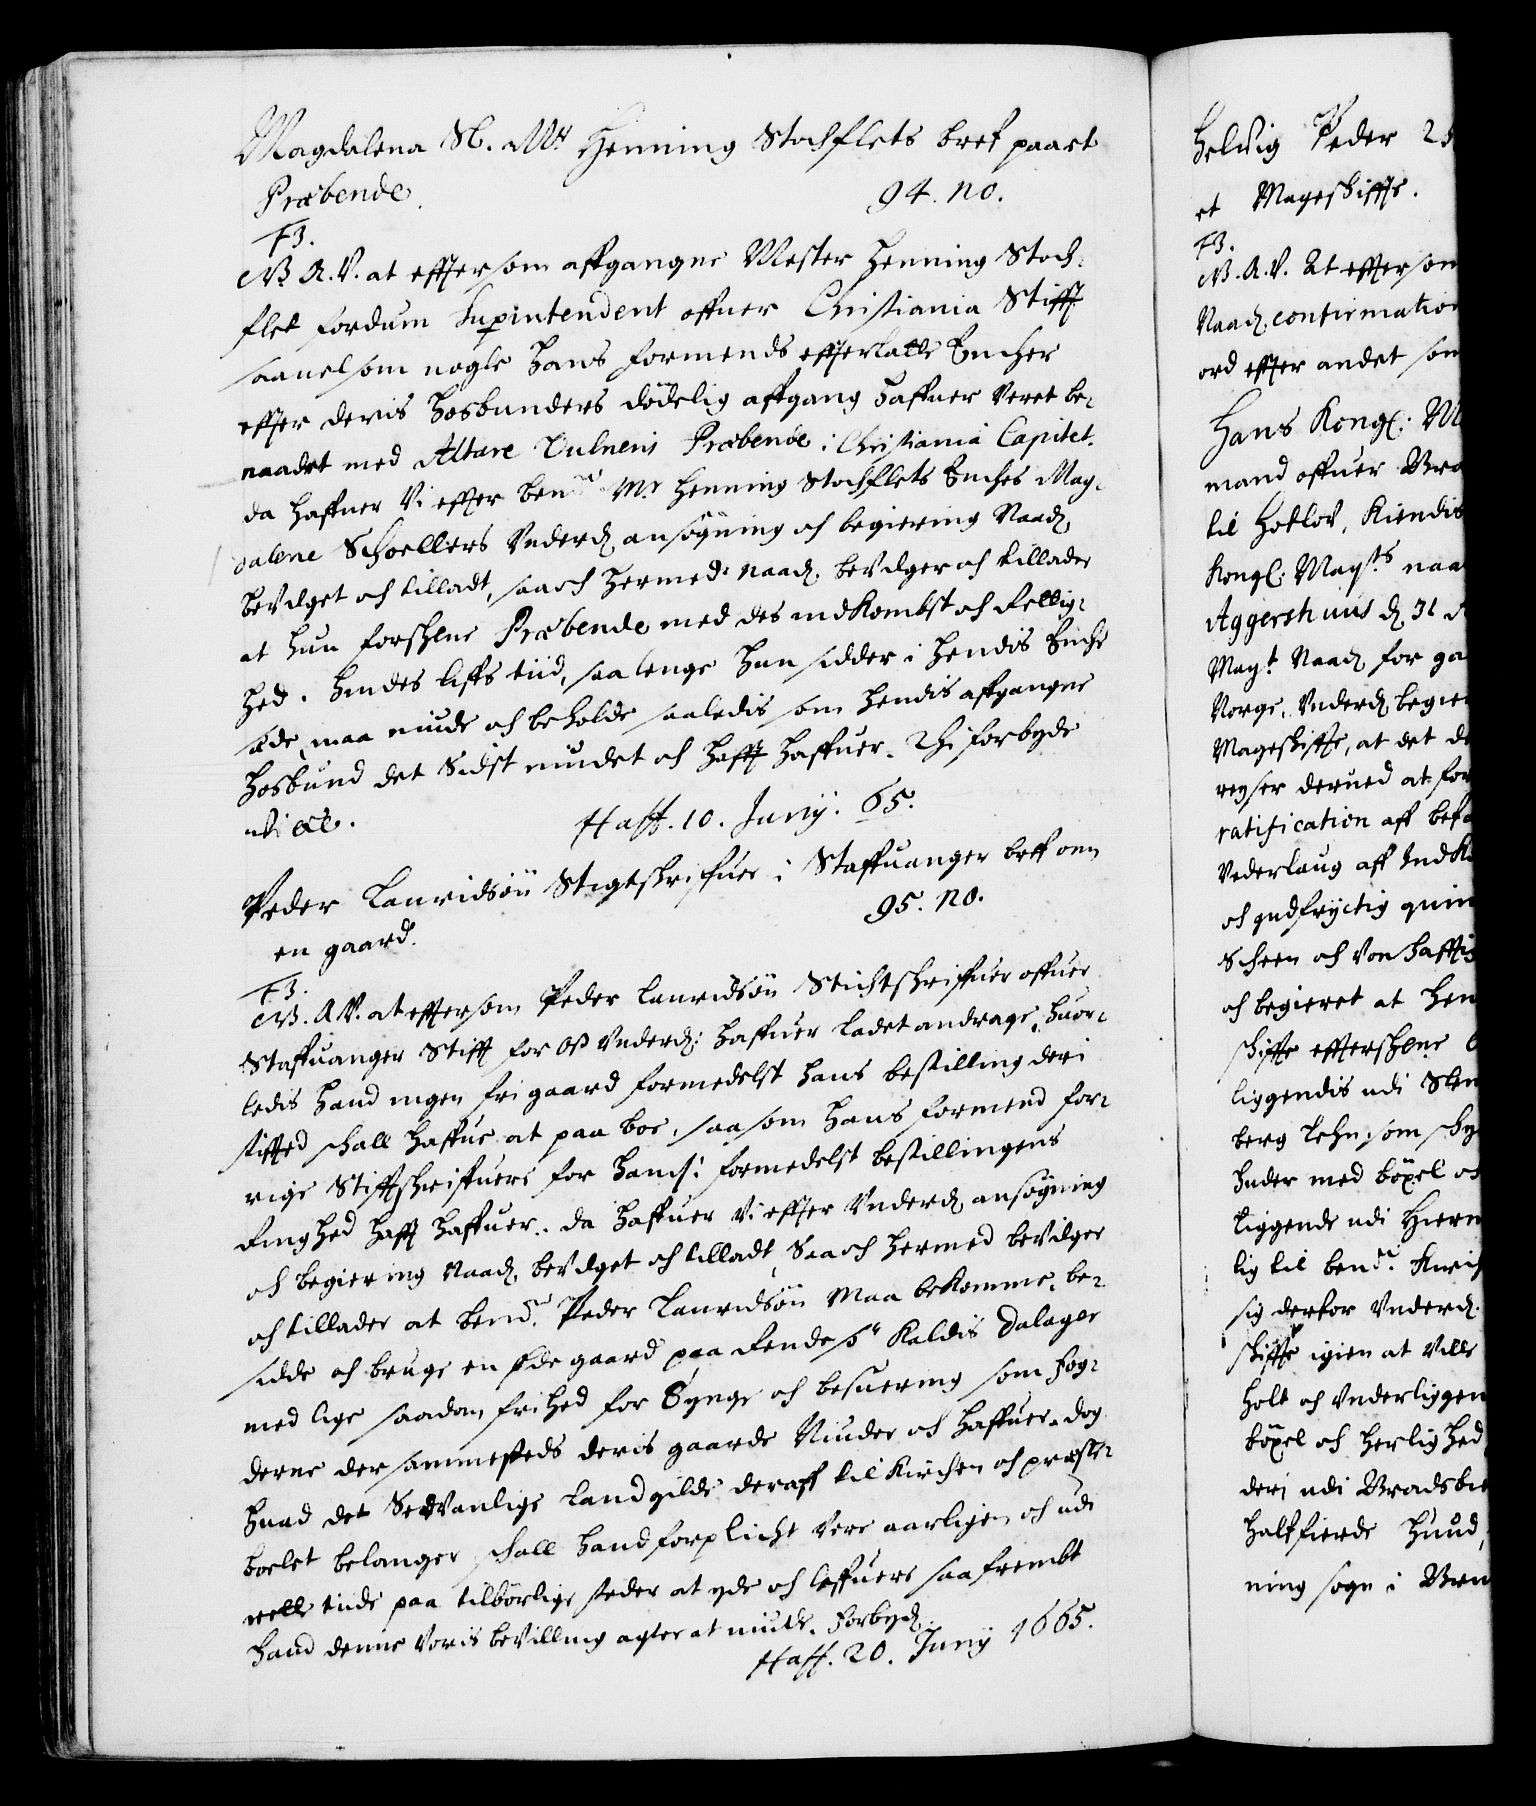 Magdalena Sl. Mr Henning Stochflets bref paa et
Præbende. 94. no.
F3.
G. A. V. at effter som affgangne Mester Henning Stoch-
flet fordum Supintendent offuer Christiania Stifft
saauelsom nogle hans formends effterlatte Encker
effter deris hosbunders dödelig affgang haffuer veret be-
naadet med Altare Vulneris Præbende i Christiania Capitel.
da haffuer Vi effter bemte Mr Henning Stochflets Enches Mag-
dalene Schoellers Underd. ansögning och begiering Naad.
bevilget och tilladt, saa och hermed Naad. bevilger och tillader
at hun forschrne Præbende med des indkombst och Rettig-
hed, hendes liffs tiid, saa lenge hun sidder i hendis Enche
sæde, maa niude och beholde saaledis som hendis affgangne
hosbund det Sidst niudet och hafft haffuer. Thi forbyde
Vi etc. Haff. 10. Junij. 65.
Peder Lauridsön Stigtschrifuer i Staffuanger breff om
en gaard. 95. no.
F3.
G. A. V. at effter som Peder Lauridsön Stichtschriffuer offuer
Staffuanger Stifft for Os Underd: haffuer ladet andrage, huor-
ledis hand ingen fri gaard formedelst hans bestilling der i
stifftet schall haffue at paa boe, saa som hans formend for-
rige Stifftschriffuere for hand: formedelst bestillingens
Ringhed hafft haffuer. da haffuer Vi effter Underd. ansögning
och begiering Naad. bevilget och tilladt, Saa och hermed bevilger
och tillader at bemte Peder Lauridsön Maa bekomme, be-
sidde och bruge en öde gaard paa Rendesö Kaldis Dalager
med lige saadan frihed for Tynge och besuering som fog-
derne der sammesteds deris gaarde Niuder och haffuer. dog
huad det Sedvanlige Landgilde deraff til Kirchen och preste-
boelet belanger schall hand forplicht vere aarligen och udi
rette tiide paa tilbörlige steder at yde och leffuere saafrembt
hand denne Voris bevilling agter at niude. Forbyd.
Haff. 20. Junij 1665.
Helvig Peder
et Mageskiffte.
F3.
G. A. V. At effter som
Naad. confirmation
ord effter andet som
Hans Kongl: M
mand offuer Bra
til Hotlov, Kiendis
Kongl: Mayts naa
Aggershuus d. 31
Mayt Naad. for ga
Norge, Underd. begier
Mageskiffte, at det
reyser derued at for
ratification aff bef
Vederlaug aff Ind
och gudfryctig quin
Scheen och Von haff
och begieret at hen
skiffte effterschrne
liggendis udi Slem
berg Lehn, som
huder med böxel och
liggende udi Hierm
lig til bemte
sig derfor Underd.
skiffte igien at Ville
Holt och Underliggen
böxel och herlighed
deri udi Bradsbier
halffierde huud,
ning sogn i Bra